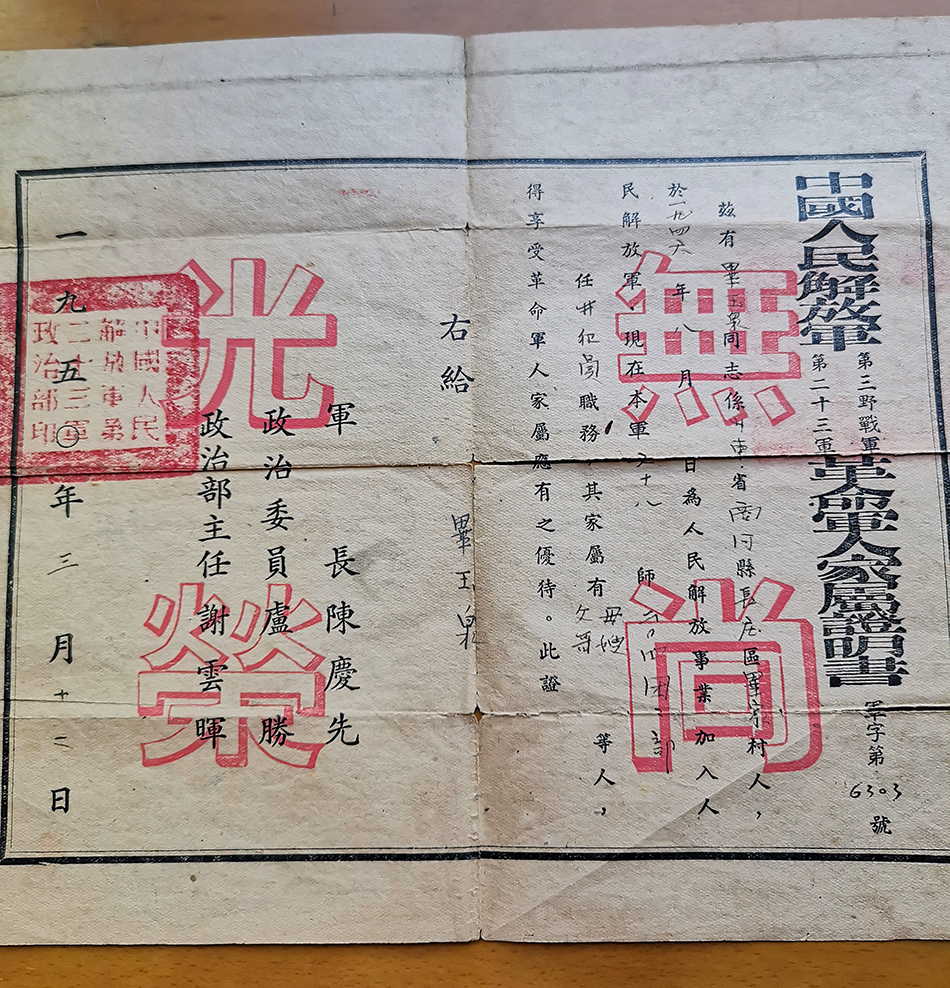 中國人民解放軍
第三野戰軍
第二十三軍
革命軍人家屬證明書
軍字第6303號
茲有畢玉泉同志係山東省商河縣長庄區畢家村人,
於一九四六年八月 日為人民解放事業加入人
民解放軍,現在本軍六十八師二〇四团 部
任 員職務,其家屬有父母 等人,
得享受革命軍人家屬應有之優待。此證
右給 畢玉泉
軍長陳慶先
政治委員盧勝
政治部主任謝雲暉
一九五〇年三月十二日
無尚光榮
中國人民
解放軍第
二十三軍
政治部印